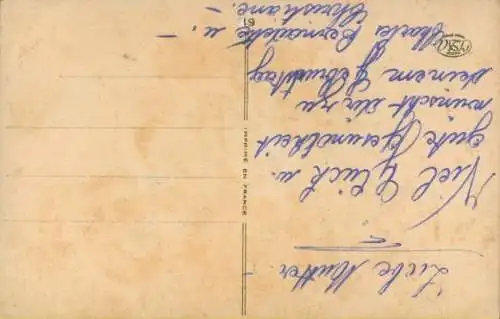 Liebe Mutter.
Viel Glück u.
gute Gesundheit
wünscht dir zu
deinem Geburtstag
Charles Bernadette u.
Christiane.
IMPRIMÉ EN FRANCE
61